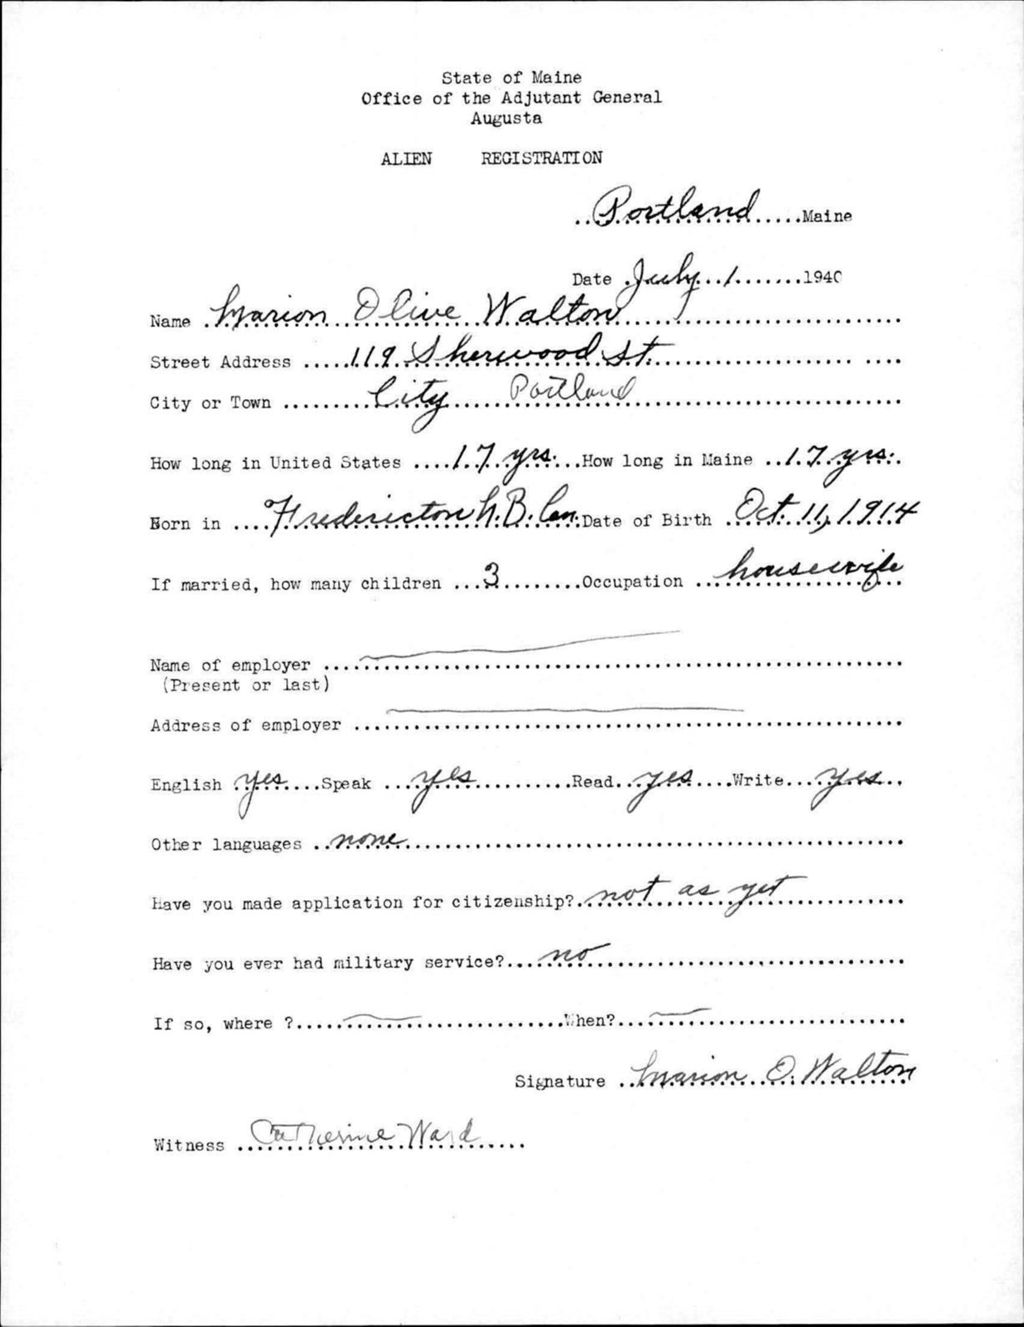 State of Maine
Office of the Adjutant General
Augusta
ALIEN REGISTRATION
Portland Maine
Date July 1 1940
Name Marion Olive Walton
Street Address 119 Sherwood St.
City or Town City Portland
How long in United States 17 yrs. How long in Maine 17 yrs.
Born in Fredericton N.B. Can. Date of Birth Oct. 11, 1914
If married, how many children 3 Occupation housewife
Name of employer
(Present or last)
Address of employer
English yes Speak yes Read yes Write yes
Other languages none
Have you made application for citizenship? not as yet
Have you ever had military service? no
If so, where ? When?
Signature Marion O. Walton
Witness Catherine Ward